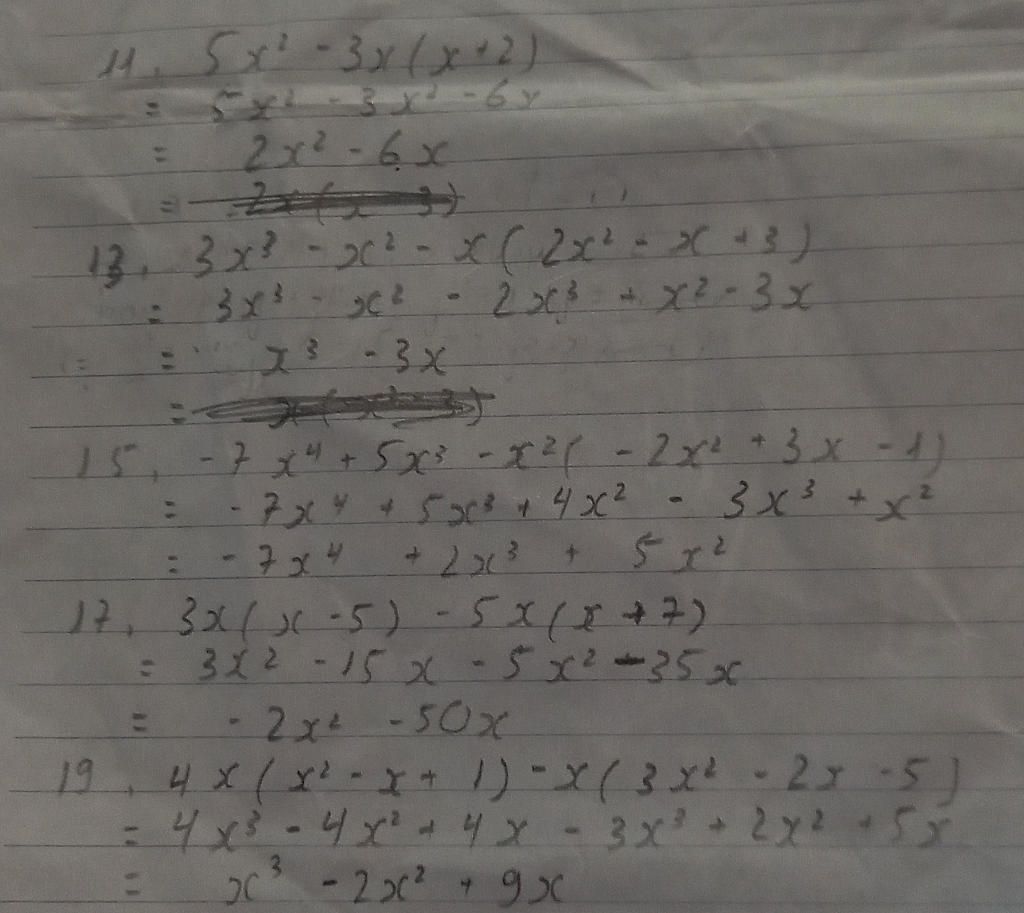 11. 5x² - 3x(x+2)
= 5x² - 3x² - 6x
= 2x² - 6x
=
13. 3x³ - x² - x(2x² - x + 3)
= 3x³ - x² - 2x³ + x² - 3x
= x³ - 3x
=
15. -7x⁴ + 5x³ - x²(-2x² + 3x - 1)
= -7x⁴ + 5x³ + 4x² - 3x³ + x²
= -7x⁴ + 2x³ + 5x²
17. 3x(x-5) - 5x(x+7)
= 3x² - 15x - 5x² - 35x
= -2x² - 50x
19. 4x(x² - x + 1) - x(3x² - 2x - 5)
= 4x³ - 4x² + 4x - 3x³ + 2x² + 5x
= x³ - 2x² + 9x